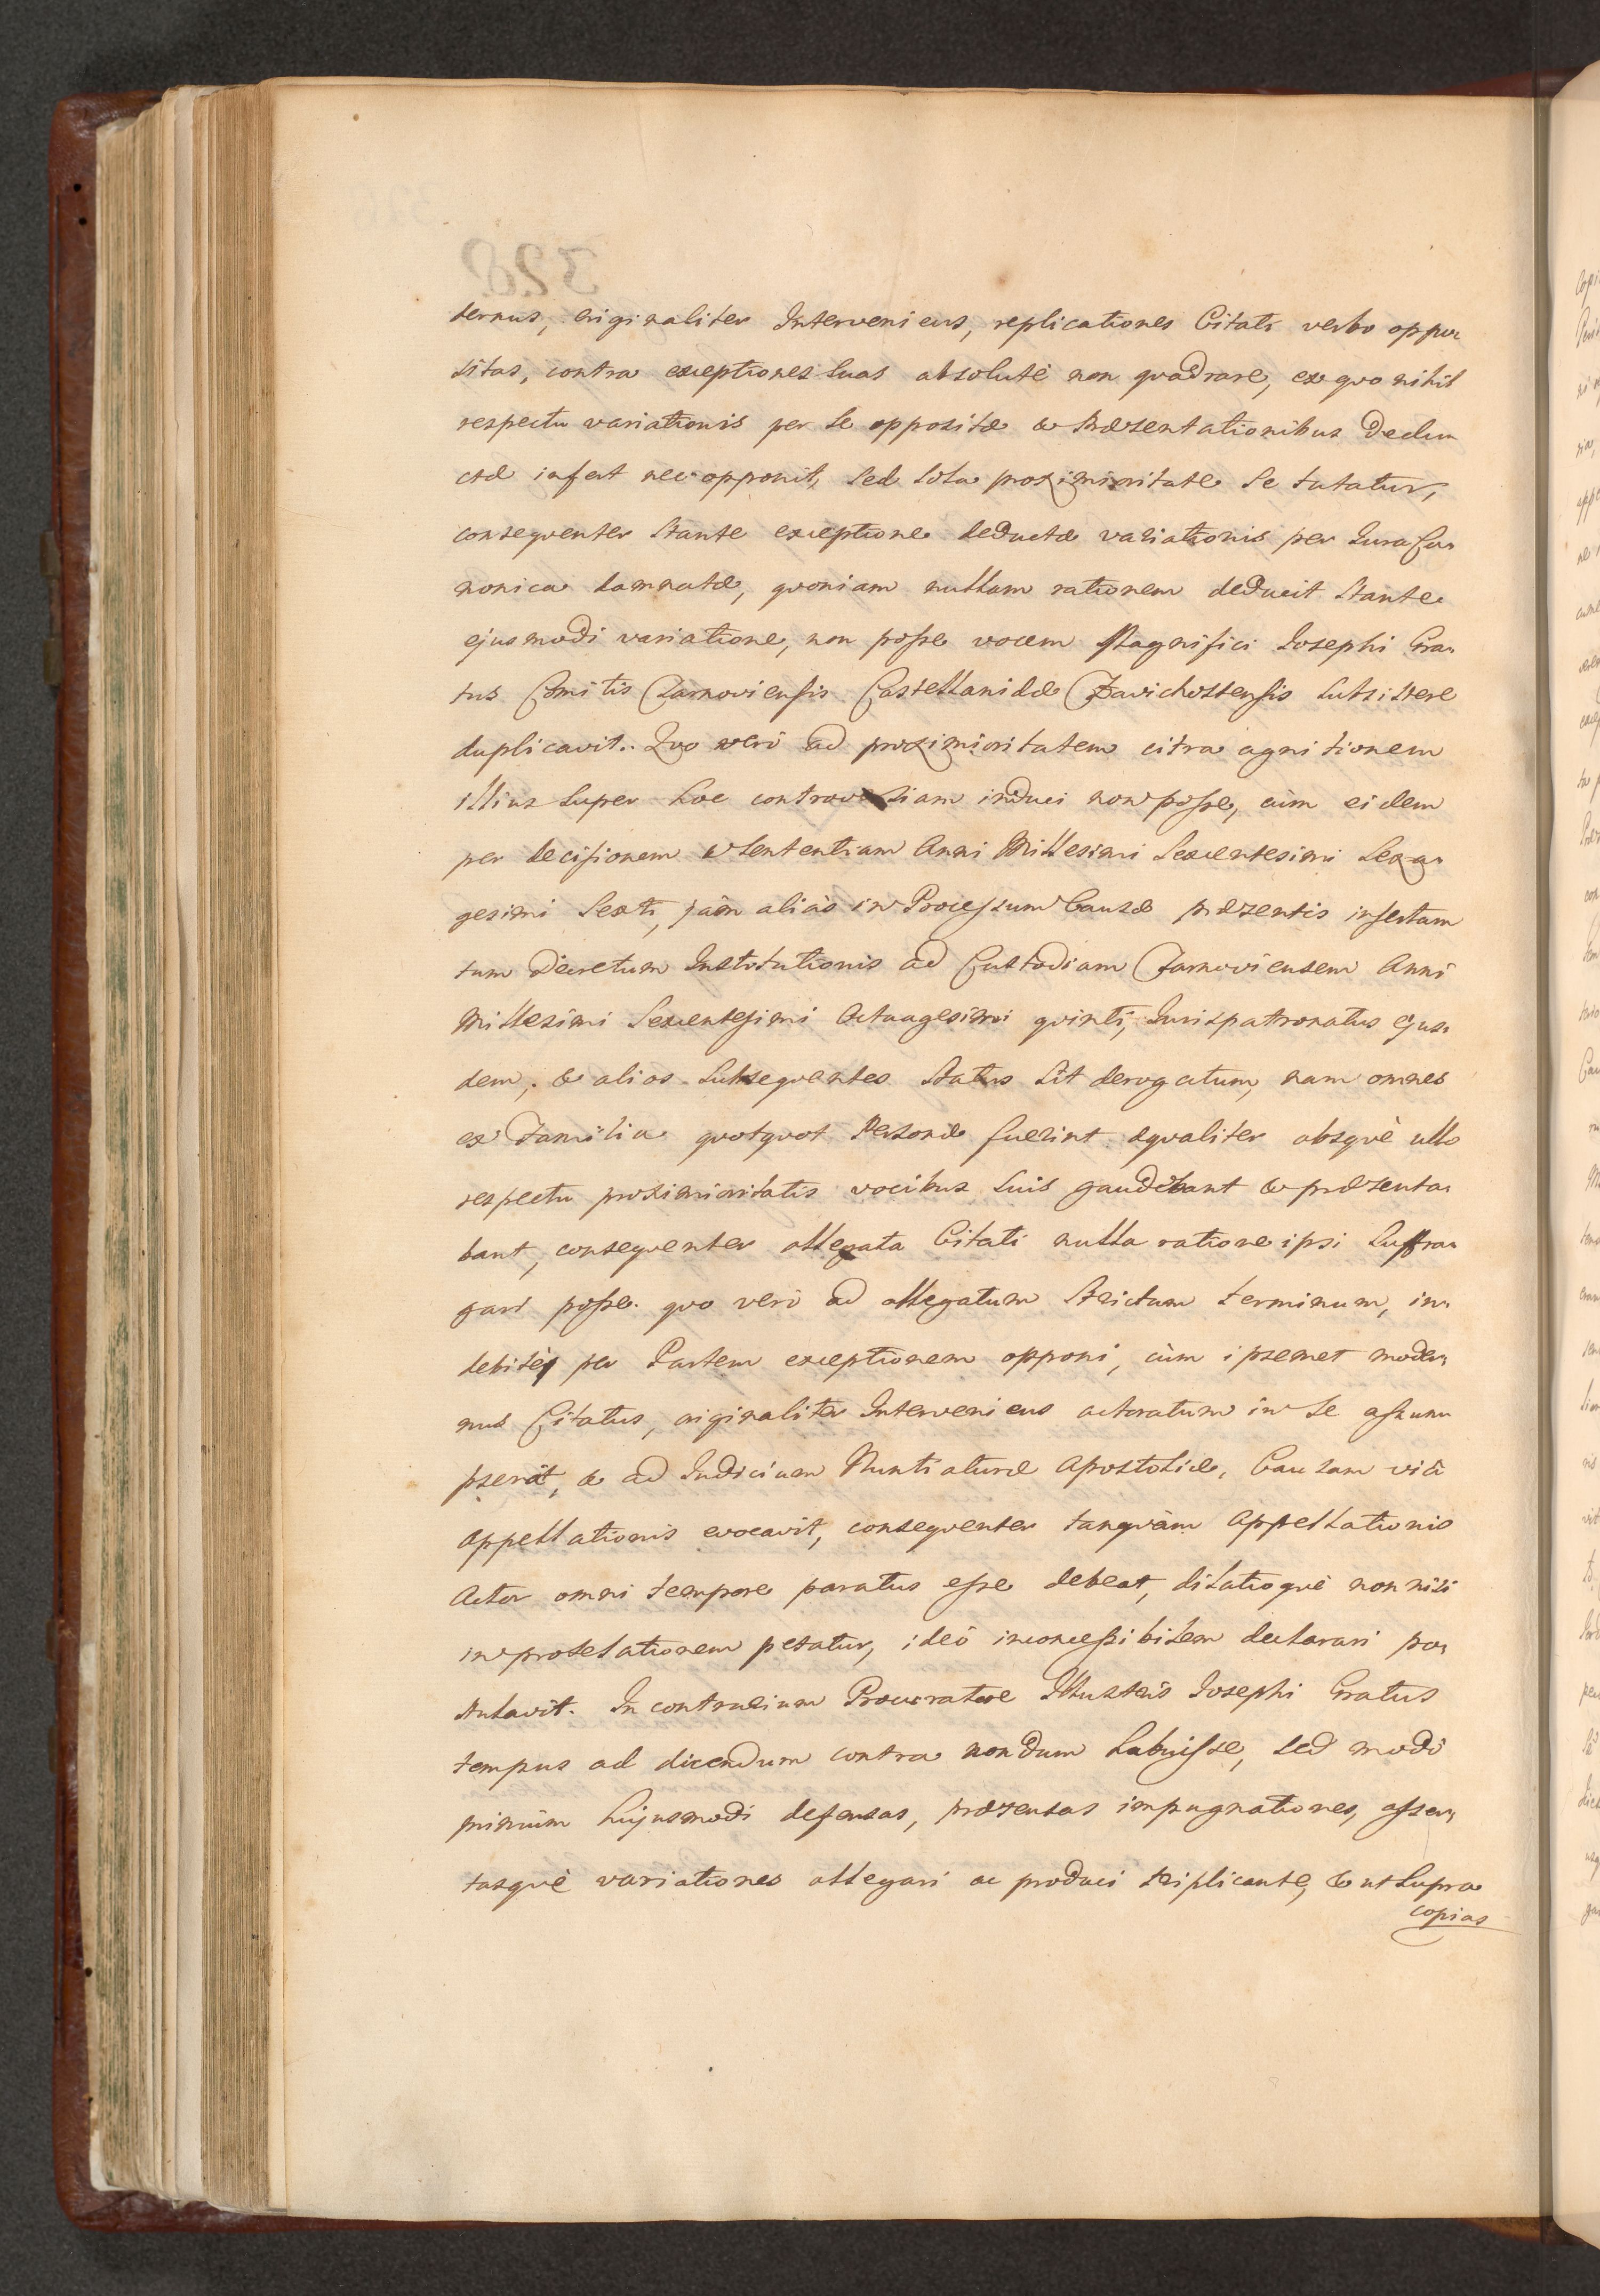 dernus, originaliter Interveniens, replicationes Citati verbo oppo-
sitas, contra exceptiones suas absolutè non quadrare, ex quo nihil
respectu variationis per se oppositæ & Præsentationibus deduc-
ctæ infert nec opponit, sed sola proximioritate se tutatur,
consequenter stante exceptione deductæ variationis per Iura Ca-
nonica damnatæ, quoniam nullam rationem deducit stante
ejusmodi variatione, non posse vocem Magnifici Iosephi Gra-
tus Comitis Tarnoviensis Castellanidæ Zavichostensis subsistere
duplicavit. Quo verò ad proximioritatem citra agnitionem
illius super hoc controversiam induci non posse, cùm eidem
per decisionem & sententiam Anni Millesimi Sexcentesimi Sexa-
gesimi Sexti, jàm aliàs in Processum Causæ præsentis insertam
tum Decretum Institutionis ad Custodiam Tarnoviensem Anni
Millesimi Sexcentesimi Octuagesimi quinti, Iurispatronatus ejus-
dem, & alios subsequentes status sit derogatum, nam omnes
ex Familia quotquot Personæ fuerint æqualiter absquè ullo
respectu proximioritatis vocibus suis gaudebant & præsenta-
bant, consequenter allegata Citati nulla ratione ipsi suffra-
gari posse. quo verò ad allegatum strictum terminum, in-
debitè per Partem exceptionem opponi, cùm ipsemet moder-
nus Citatus, originaliter Interveniens actoratum in se assum-
pserit, & ad Iudicium Nuntiaturæ Apostolicæ, Causam viâ
Appellationis evocavit, consequenter tanquàm Appellationis
Actor omni tempore paratus esse debeat, dilatioquè non nisi
in protelationem petatur, ideò inconcessibilem declarari po-
stulavit. In contrarium Procuratore Illustris Iosephi Gratus
tempus ad dicendum contra nondum habuisse, sed modò
primùm hujusmodi defensas, prætensas impugnationes, asser-
tasquè variationes allegari ac produci triplicante, & ut supra
copias